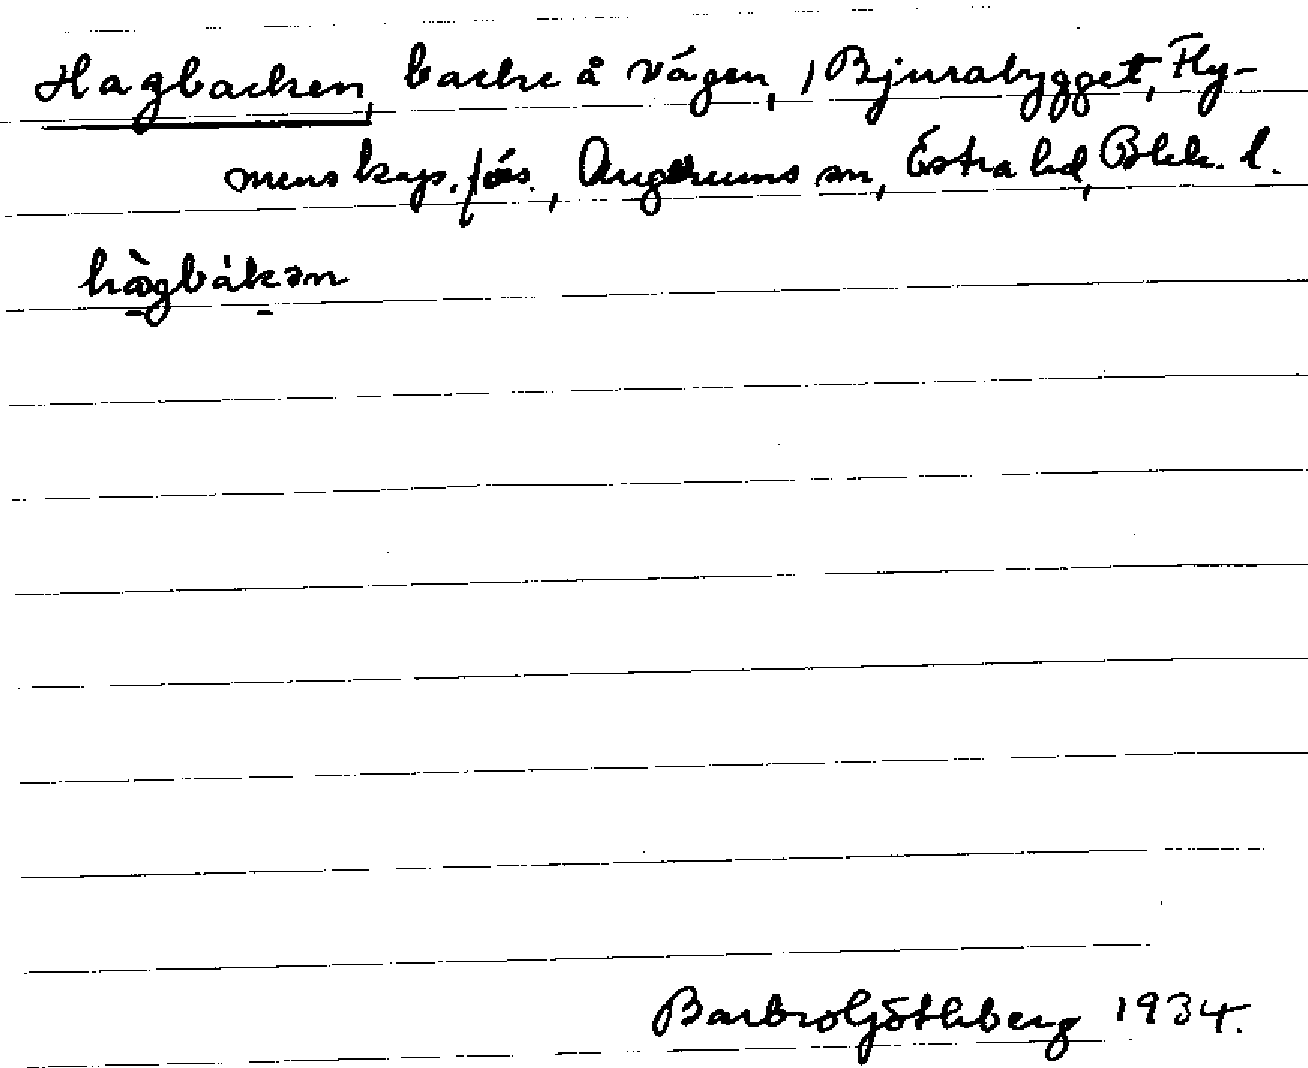 Hagbacken, backe å vägen, i Bjurabygget, Fly-
mens kap. förs., Augerums sn, Östra hd, Blek. l.
hàgbákən
Barbro Götheberg 1934.